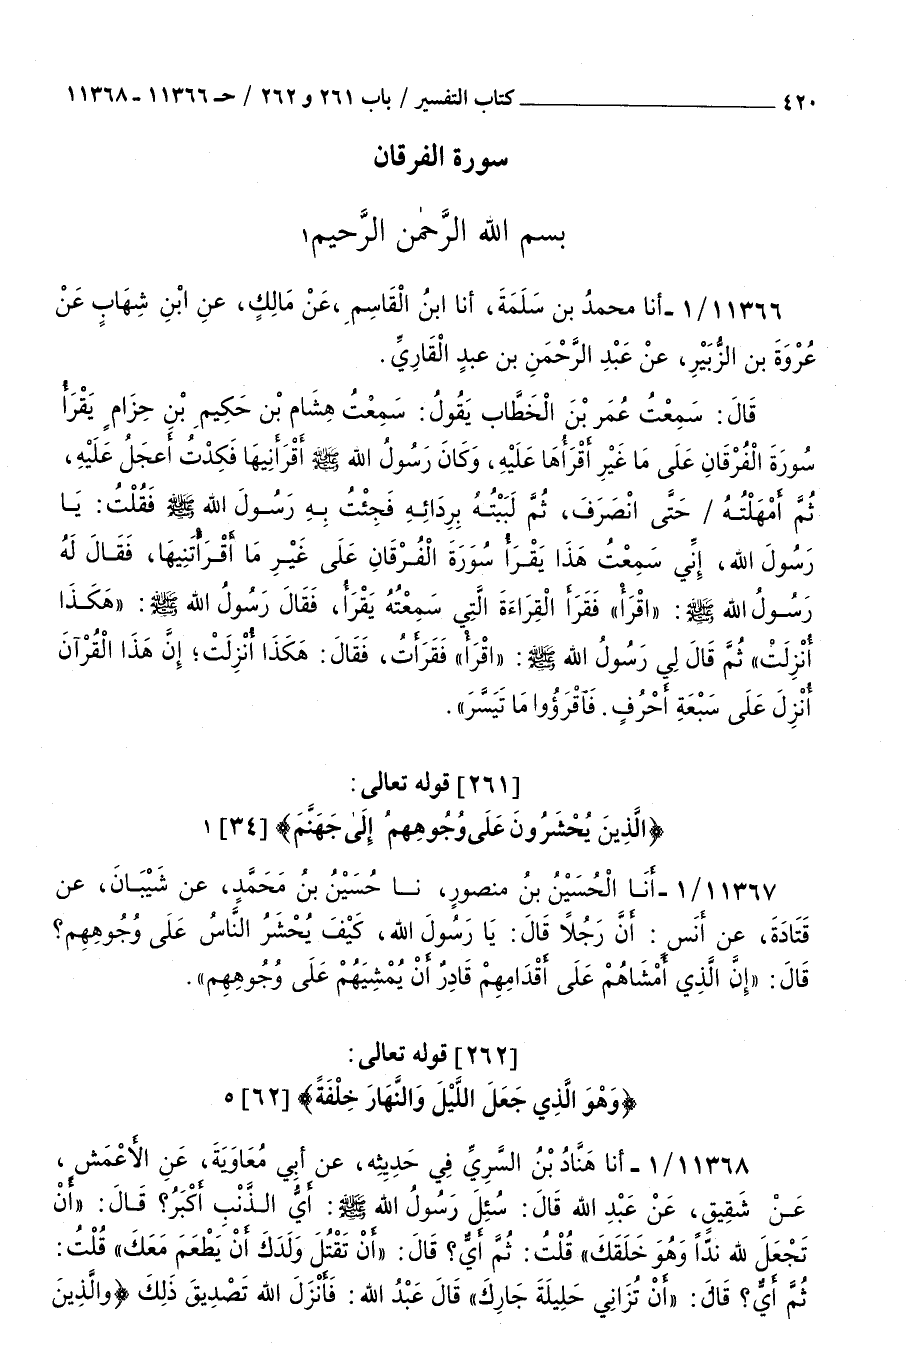 ٤٢٠ ـــــــــــــــــــــــــــــــــــ كتاب التفسير / باب ٢٦١ و ٢٦٢ / حـ ١١٣٦٦ ـ ١١٣٦٨
سورة الفرقان
بسم الله الرَّحمٰن الرَّحيم١
١/١١٣٦٦ ـ أنا محمدُ بن سَلَمَةَ، أنا ابنُ الْقَاسِمِ ،عَنْ مَالِكٍ، عنِ ابْنِ شِهَابٍ عَنْ
عُرْوَةَ بن الزُّبَيْرِ، عنْ عَبْدِ الرَّحْمَنِ بن عبدٍ الْقَارِيِّ.
قَالَ: سَمِعْتُ عُمَر بْنَ الْخَطَّاب يَقُولُ: سَمِعْتُ هِشَام بْن حَكِيمِ بْنِ حِزَامٍ يَقْرَأُ
سُورَةَ الْفُرْقَانِ عَلَى مَا غَيْرِ أَقْرَأُهَا عَلَيْهِ، وَكَانَ رَسُولُ الله ﷺ أَقْرَأَنِيهَا فَكِدْتُ أَعجَلُ عَلَيْهِ،
ثُمَّ أَمْهَلْتُهُ / حَتَّى انْصَرَفَ، ثُمَّ لَبَبْتُهُ بِرِدَائِهِ فَجِئْتُ بِهِ رَسُولَ الله ﷺ فَقُلْتُ: يَا
رَسُولَ الله، إِنِّي سَمِعْتُ هَذَا يَقْرَأُ سُورَةَ الْفُرْقَانِ عَلَى غَيْرِ مَا أَقْرَأْتَنِيهَا، فَقَالَ لَهُ
رَسُولُ الله ﷺ: «اقْرَأْ» فَقَرَأَ الْقِرَاءَةَ الَّتِي سَمِعْتُهُ يَقْرَأُ، فَقَالَ رَسُولُ الله ﷺ: «هَكَذَا
أُنْزِلَتْ» ثُمَّ قَالَ لِي رَسُولُ الله ﷺ: «اقْرَأْ» فَقَرَأْتُ، فَقَالَ: هَكَذَا أُنْزِلَتْ؛ إِنَّ هَذَا الْقُرْآنَ
أُنْزِلَ عَلَى سَبْعَةِ أَحْرُفٍ. فَآقْرَؤُوا مَا تَيَسَّرَ».
[٢٦١] قوله تعالى:
﴿الَّذِينَ يُحْشَرُونَ عَلَى وُجُوهِهِمُ إِلَىٰ جَهَنَّمَ﴾ [٣٤] ١
١/١١٣٦٧ ـ أَنَا الْحُسَيْنُ بنُ منصورٍ، نا حُسَيْنُ بنُ مَحَمَّدٍ، عن شَيْبَانَ، عن
قَتَادَةَ، عن أَنَسٍ: أَنَّ رَجُلاً قَالَ: يَا رَسُولَ الله، كَيْفَ يُحْشَرُ النَّاسُ عَلَى وُجُوهِهِم؟
قَالَ: «إِنَّ الَّذِي أَمْشَاهُمْ عَلَى أَقْدَامِهِمْ قَادِرٌ أَنْ يُمْشِيَهُمْ عَلَى وُجُوهِهِم».
[٢٦٢] قوله تعالى:
﴿وَهْوَ الَّذِي جَعَلَ اللَّيْلَ وَالنَّهَارَ خِلْفَةً﴾ [٦٢] ٥
١/١١٣٦٨ ـ أنا هَنَّادُ بْنُ السَّرِيِّ فِي حَدِيثِهِ، عن أبي مُعَاوَيَةَ، عَنِ الأَعْمَشِ،
عَنْ شَقِيقٍ، عَنْ عَبْدِ الله قَالَ: سُئِلَ رَسُولُ الله ﷺ: أَيُّ الذَّنْبِ أَكْبَرُ؟ قَالَ: «أَنْ
تَجْعَلَ لله نِدّاً وَهُوَ خَلَقَكَ» قُلْتُ: ثُمَّ أَيُّ؟ قَالَ: «أَنْ تَقْتُلَ وَلَدَكَ أَنْ يَطْعَمَ مَعَكَ» قُلْتُ:
ثُمَّ أَيُّ؟ قَالَ: «أَنْ تُزَانِي حَلِيلَةَ جَارِكَ» قَالَ عَبْدُ الله: فَأَنْزَلَ الله تَصْدِيقَ ذَلِكَ ﴿والَّذِينَ